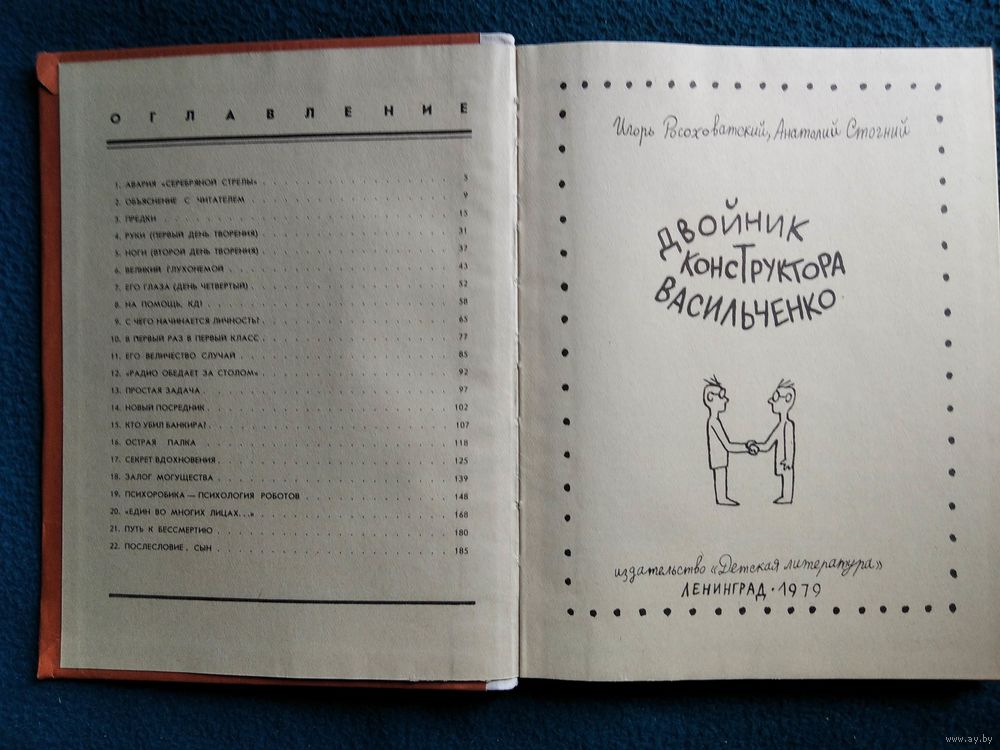 ОГЛАВЛЕНИЕ
1. АВАРИЯ «СЕРЕБРЯНОЙ СТРЕЛЫ» 5
2. ОБЪЯСНЕНИЕ С ЧИТАТЕЛЕМ 9
3. ПРЕДКИ 15
4. РУКИ (ПЕРВЫЙ ДЕНЬ ТВОРЕНИЯ) 31
5. НОГИ (ВТОРОЙ ДЕНЬ ТВОРЕНИЯ) 37
6. ВЕЛИКИЙ ГЛУХОНЕМОЙ 43
7. ЕГО ГЛАЗА (ДЕНЬ ЧЕТВЕРТЫЙ) 52
8. НА ПОМОЩЬ, КД! 58
9. С ЧЕГО НАЧИНАЕТСЯ ЛИЧНОСТЬ? 65
10. В ПЕРВЫЙ РАЗ В ПЕРВЫЙ КЛАСС 77
11. ЕГО ВЕЛИЧЕСТВО СЛУЧАЙ 85
12. «РАДИО ОБЕДАЕТ ЗА СТОЛОМ» 92
13. ПРОСТАЯ ЗАДАЧА 97
14. НОВЫЙ ПОСРЕДНИК 102
15. КТО УБИЛ БАНКИРА? 107
16. ОСТРАЯ ПАЛКА 118
17. СЕКРЕТ ВДОХНОВЕНИЯ 125
18. ЗАЛОГ МОГУЩЕСТВА 139
19. ПСИХОРОБИКА — ПСИХОЛОГИЯ РОБОТОВ 148
20. «ЕДИН ВО МНОГИХ ЛИЦАХ...» 168
21. ПУТЬ К БЕССМЕРТИЮ 180
22. ПОСЛЕСЛОВИЕ. СЫН 185
Игорь Росоховатский, Анатолий Стогний
ДВОЙНИК
КОНСТРУКТОРА
ВАСИЛЬЧЕНКО
издательство «Детская литература»
ЛЕНИНГРАД · 1979
www.ay.by